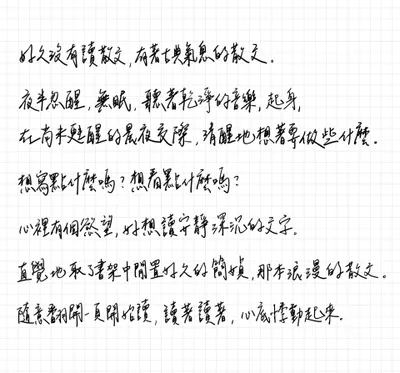 好久沒有讀散文,有著古典氣息的散文。
夜半忽醒,無眠,聽著乾淨的音樂,起身,
在尚未甦醒的晨夜交際,清醒地想著要做些什麼.
想寫點什麼嗎?想看點什麼嗎?
心裡有個慾望,好想讀安靜深沉的文字。
直覺地取了書架中閒置好久的簡媜,那本浪漫的散文。
隨意翻開一頁開始讀,讀著讀著,心底悸動起來.